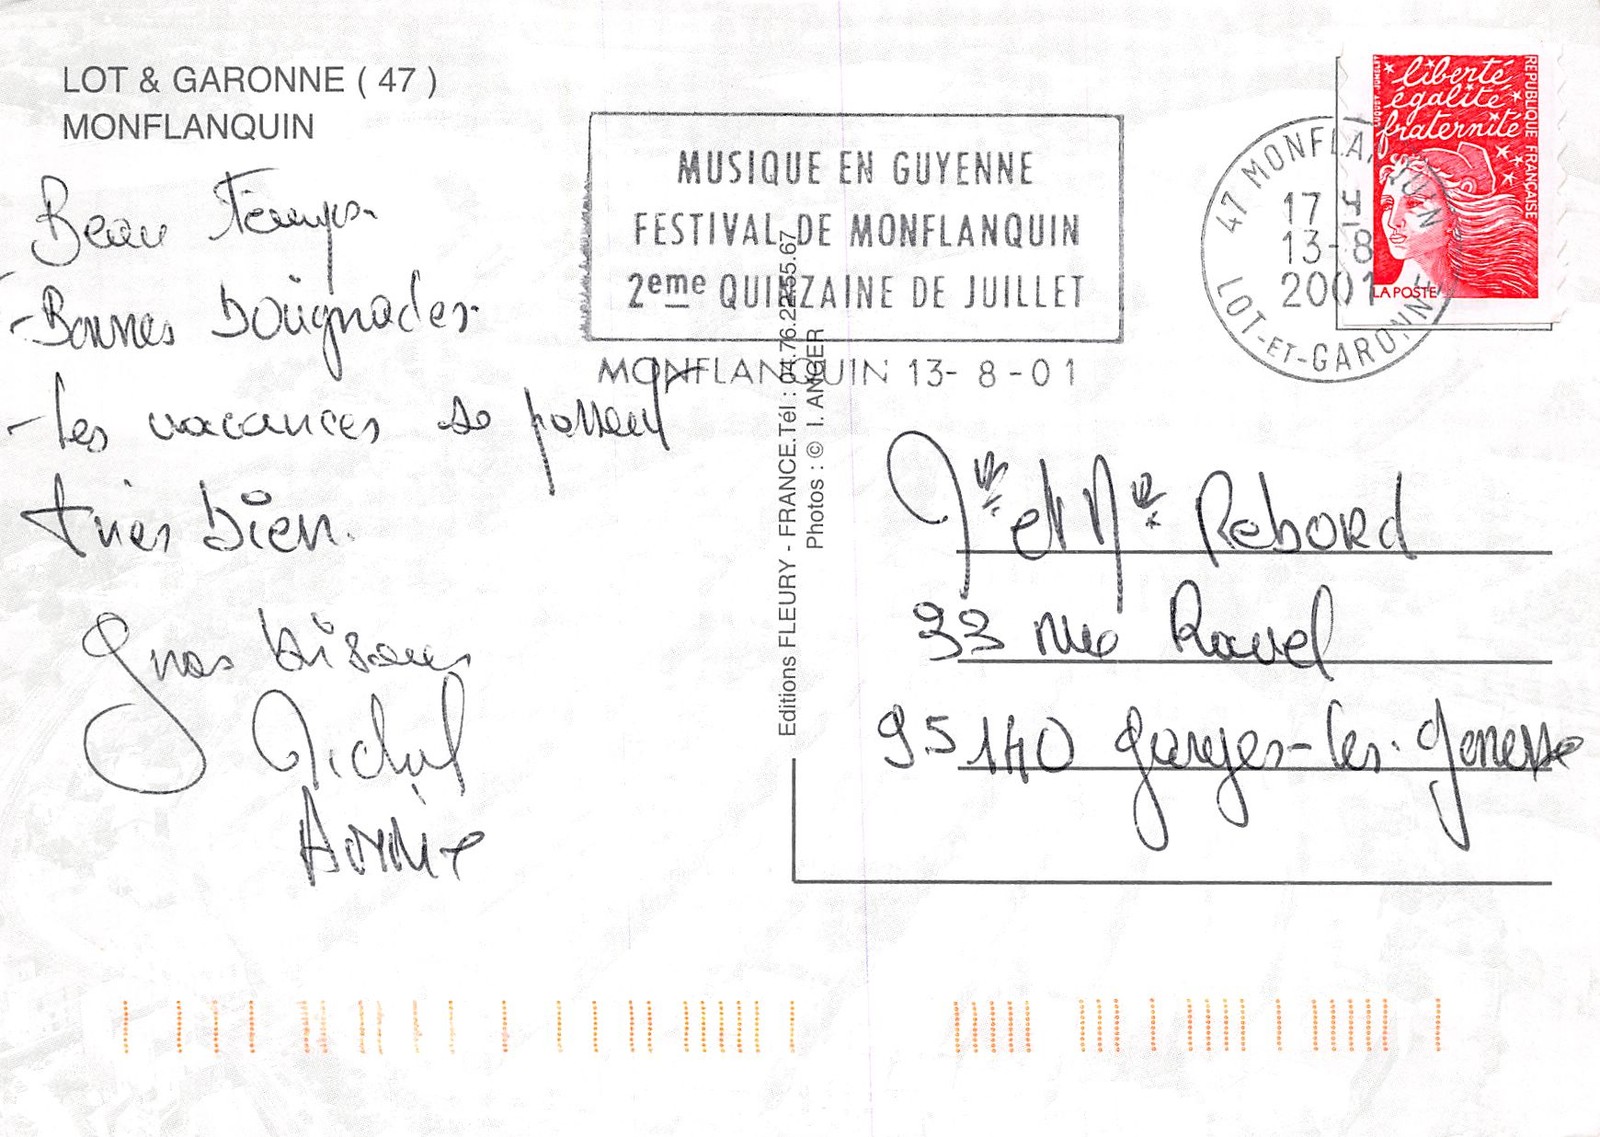 LOT & GARONNE ( 47 )
MONFLANQUIN
Beau Temps.
- Bonnes Baignades
- Les vacances se passent
très bien.
Gros bisous
Michel
MUSIQUE EN GUYENNE
FESTIVAL DE MONFLANQUIN
2eme QUINZAINE DE JUILLET
MONFLANQUIN 13-8-01
47 MONFLANQUIN
17 H
13-8
2001
LOT-ET-GARONNE
liberté
égalité
fraternité
REPUBLIQUE FRANÇAISE
LA POSTE
Editions FLEURY - FRANCE.Tél : 04.76.22.55.67
Photos : © I. ANGER
et Rebord
33 rue Ravel
95140 Garges-les-Gonesse